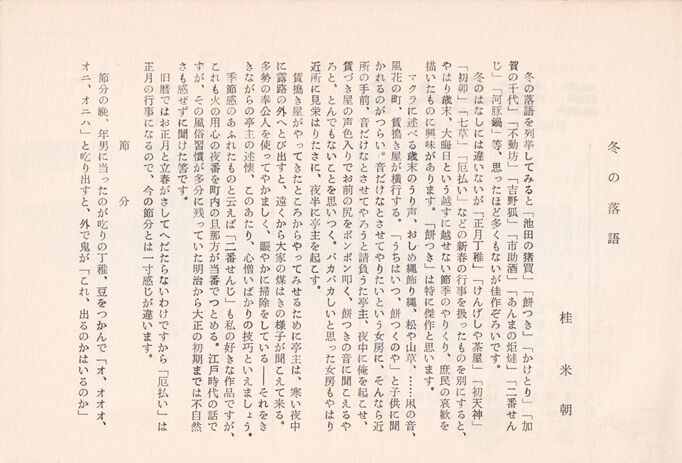 冬の落語
桂米朝
冬の落語を列挙してみると「池田の猪買」「餅つき」「かけとり」「加
賀の千代」「不動坊」「吉野狐」「市助酒」「あんまの炬燵」「二番せん
じ」「河豚鍋」等、思ったほど多くもないが佳作ぞろいです。
冬のはなしには違いないが「正月丁稚」「けんげしゃ茶屋」「初天神」
「初卯」「七草」「厄払い」などの新春の行事を扱ったものを別にすると、
やはり歳末、大晦日という越すに越せない節季のやりくり、庶民の哀歓を
描いたものに興味があります。「餅つき」は特に傑作と思います。
マクラに述べる歳末のうり声、おしめ縄飾り縄、松や山草、……凩の音、
風花の町、賃搗き屋が横行する。「うちはいつ、餅つくのや」と子供に聞
かれるのがつらい。音だけなとさせてやりたいという女房に、そんなら近
所の手前、音だけなとさせてやろうと請負うた亭主、夜中に俺を起こせ、
賃づき屋の声色入りでお前の尻をポンポン叩く、餅つきの音に聞こえるや
ろと、とんでもないことを思いつく。バカバカしいと思った女房もやはり
近所に見栄はりたさに、夜半に亭主を起こす。
賃搗き屋がやってきたところからやってみせるために亭主は、寒い夜中
に露路の外へとび出すと、遠くから大家の煤はきの様子が聞こえて来る。
多勢の奉公人を使ってやかましく、賑やかに掃除をしている――それをき
きながらの亭主の述懐、このあたり、心憎いばかりの技巧といえましょう。
季節感のあふれたものと云えば「二番せんじ」も私の好きな作品ですが、
これも火の用心の夜番を町内の旦那方が当番でつとめる。江戸時代の話で
すが、その風俗習慣が多分に残っていた明治から大正の初期までは不自然
さも感ぜずに聞けた筈です。
旧暦ではお正月と立春がさしてへだたらないわけですから「厄払い」は
正月の行事になるので、今の節分とは一寸感じが違います。
節分
節分の晩、年男に当ったのが吃りの丁稚、豆をつかんで「オ、オオオ、
オニ、オニハ」と吃り出すと、外で鬼が「これ、出るのかはいるのか」